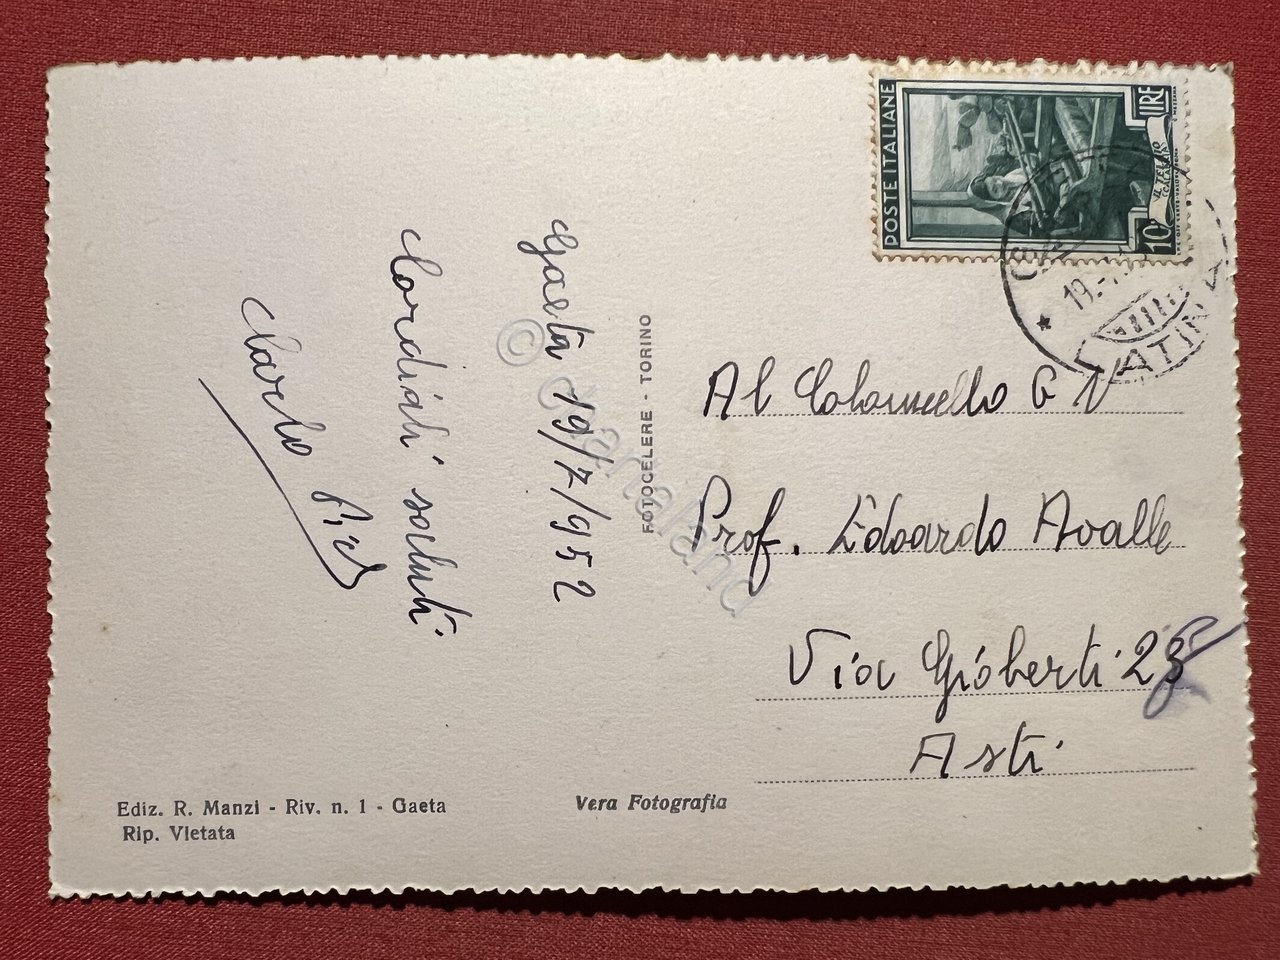 Gaeta 19/7/952
Cordiali saluti
Carlo
FOTOCELERE - TORINO
POSTE ITALIANE
LIRE
10
IL TELAIO
(CALABRIA)
GAETA
19.-7
LATINA
Al Colonnello G N
Prof. Edoardo Avalle
Via Gioberti 23
Asti
Ediz. R. Manzi - Riv. n. 1 - Gaeta
Rip. Vietata
Vera Fotografia
© cartaland